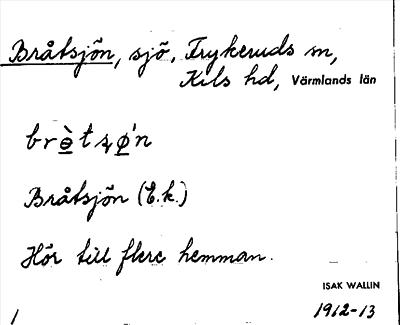 Bråtsjön, sjö, Frykeruds sn,
Kils hd, Värmlands län
Bråtsjön (E.k.)
Hör till flere hemman.
ISAK WALLIN
1 1912-13